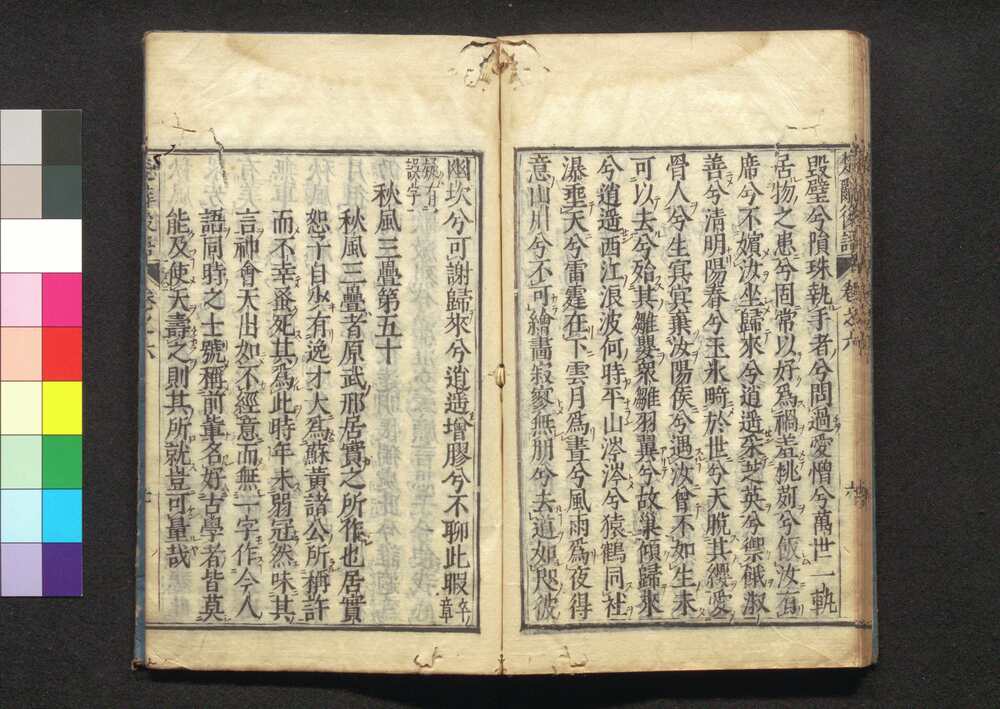 楚辭後語 卷之六
毀璧兮隕珠執手者兮問過愛憎兮萬世一軌
居物之患兮固常以好爲禍羞桃茢兮飯汝有
席兮不嬪汝坐歸來兮逍遥采芝英兮禦餓淑
善兮清明陽春兮玉氷畸於世兮天脱其纓愛
骨人兮生冥冥棄汝陽侯兮遇汝曾不如生未
可以去兮殆其雛嬰衆雛羽翼兮故巢傾歸來
兮逍遥西江浪波何時平山涔涔兮猿鶴同社
瀑垂天兮雷霆在下雲月爲晝兮風雨爲夜得
意山川兮不可繪畫寂寥無朋兮去道如咫彼
幽坎兮可謝歸來兮逍遥增膠兮不聊此暇 卒章
疑有
誤字
秋風三疊第五十
秋風三疊者原武邢居實之所作也居實
恕子自少有逸才大爲蘇黄諸公所稱許
而不幸蚤死其爲此時年未弱冠然味其
言神會天出如不經意而無一字作今人
語同時之士號稱前輩名好古學者皆莫
能及使天壽之則其所就豈可量哉